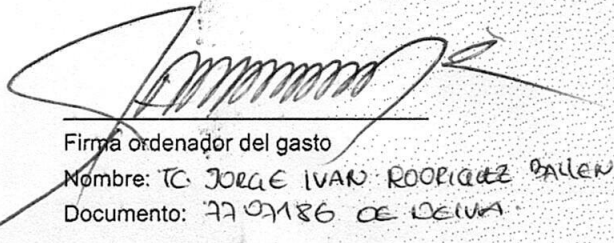 Firma ordenador del gasto
Nombre: TC JORGE IVAN RODRIGUEZ BALLEN
Documento: 7707186 DE NEIVA.